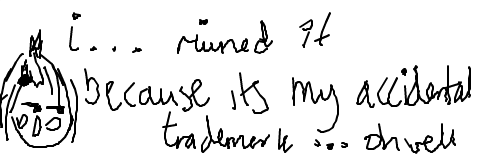 i... ruined it
because its my accidental
trademark ... ohwell